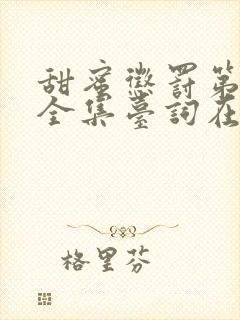 甜蜜懲罰第
全集臺詞在
格里芬